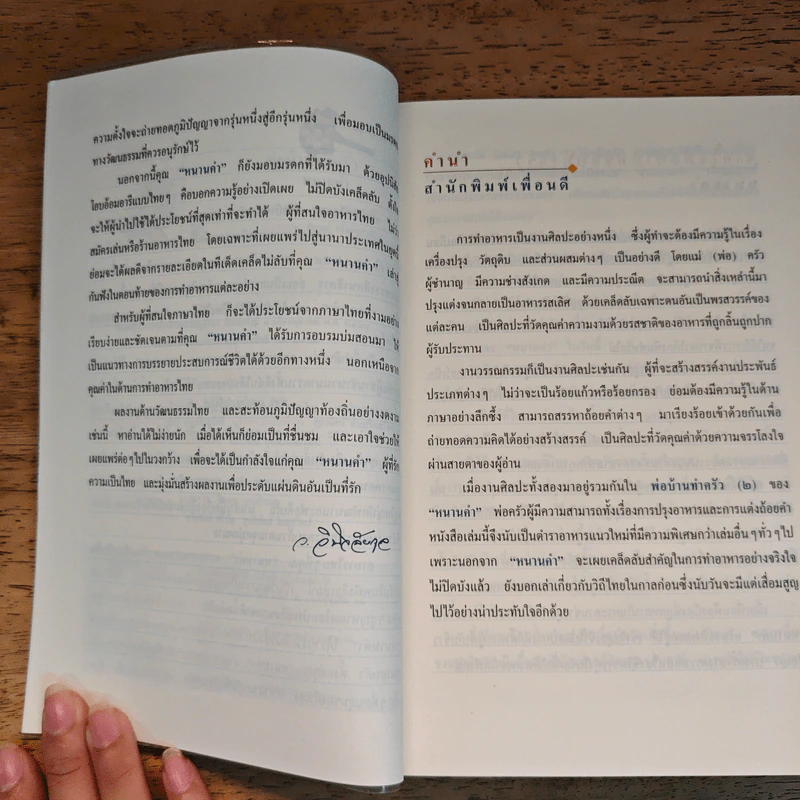 ความตั้งใจจะถ่ายทอดภูมิปัญญาจากรุ่นหนึ่งสู่อีกรุ่นหนึ่ง เพื่อมอบเป็นมรดก
ทางวัฒนธรรมที่ควรอนุรักษ์ไว้
นอกจากนี้คุณ “หนานคำ” ก็ยังมอบมรดกที่ได้รับมา ด้วยอุปนิสัย
โอบอ้อมอารีแบบไทยๆ คือบอกความรู้อย่างเปิดเผย ไม่ปิดบังเคล็ดลับ ตั้งใจ
จะให้ผู้นำไปใช้ได้ประโยชน์ที่สุดเท่าที่จะทำได้ ผู้ที่สนใจอาหารไทย ไม่ว่า
สมัครเล่นหรือร้านอาหารไทย โดยเฉพาะที่เผยแพร่ไปสู่นานาประเทศในยุคนี้
ย่อมจะได้ผลดีจากรายละเอียดในทีเด็ดเคล็ดไม่ลับที่คุณ “หนานคำ” เล่าสู่
กันฟังในตอนท้ายของการทำอาหารแต่ละอย่าง
สำหรับผู้ที่สนใจภาษาไทย ก็จะได้ประโยชน์จากภาษาไทยที่งามอย่าง
เรียบง่ายและชัดเจนตามที่คุณ “หนานคำ” ได้รับการอบรมบ่มสอนมา ให้
เป็นแนวทางการบรรยายประสบการณ์ชีวิตได้ด้วยอีกทางหนึ่ง นอกเหนือจาก
คุณค่าในด้านการทำอาหารไทย
ผลงานด้านวัฒนธรรมไทย และสะท้อนภูมิปัญญาท้องถิ่นอย่างงดงาม
เช่นนี้ หาอ่านได้ไม่ง่ายนัก เมื่อได้เห็นก็ย่อมเป็นที่ชื่นชม และเอาใจช่วยให้
เผยแพร่ต่อๆไปในวงกว้าง เพื่อจะได้เป็นกำลังใจแก่คุณ “หนานคำ” ผู้ที่รัก
ความเป็นไทย และมุ่งมั่นสร้างผลงานเพื่อประดับแผ่นดินอันเป็นที่รัก
ว. วินิจฉัยกุล
คำนำ
สำนักพิมพ์เพื่อนดี
การทำอาหารเป็นงานศิลปะอย่างหนึ่ง ซึ่งผู้ทำจะต้องมีความรู้ในเรื่อง
เครื่องปรุง วัตถุดิบ และส่วนผสมต่างๆ เป็นอย่างดี โดยแม่ (พ่อ) ครัว
ผู้ชำนาญ มีความช่างสังเกต และมีความประณีต จะสามารถนำสิ่งเหล่านี้มา
ปรุงแต่งจนกลายเป็นอาหารรสเลิศ ด้วยเคล็ดลับเฉพาะตนอันเป็นพรสวรรค์ของ
แต่ละคน เป็นศิลปะที่วัดคุณค่าความงามด้วยรสชาติของอาหารที่ถูกลิ้นถูกปาก
ผู้รับประทาน
งานวรรณกรรมก็เป็นงานศิลปะเช่นกัน ผู้ที่จะสร้างสรรค์งานประพันธ์
ประเภทต่างๆ ไม่ว่าจะเป็นร้อยแก้วหรือร้อยกรอง ย่อมต้องมีความรู้ในด้าน
ภาษาอย่างลึกซึ้ง สามารถสรรหาถ้อยคำต่างๆ มาเรียงร้อยเข้าด้วยกันเพื่อ
ถ่ายทอดความคิดได้อย่างสร้างสรรค์ เป็นศิลปะที่วัดคุณค่าด้วยความจรรโลงใจ
ผ่านสายตาของผู้อ่าน
เมื่องานศิลปะทั้งสองมาอยู่รวมกันใน พ่อบ้านทำครัว (๒) ของ
“หนานคำ” พ่อครัวผู้มีความสามารถทั้งเรื่องการปรุงอาหารและการแต่งถ้อยคำ
หนังสือเล่มนี้จึงนับเป็นตำราอาหารแนวใหม่ที่มีความพิเศษกว่าเล่มอื่นๆทั่วๆไป
เพราะนอกจาก “หนานคำ” จะเผยเคล็ดลับสำคัญในการทำอาหารอย่างจริงใจ
ไม่ปิดบังแล้ว ยังบอกเล่าเกี่ยวกับวิถีไทยในกาลก่อนซึ่งนับวันจะมีแต่เสื่อมสูญ
ไปไว้อย่างน่าประทับใจอีกด้วย